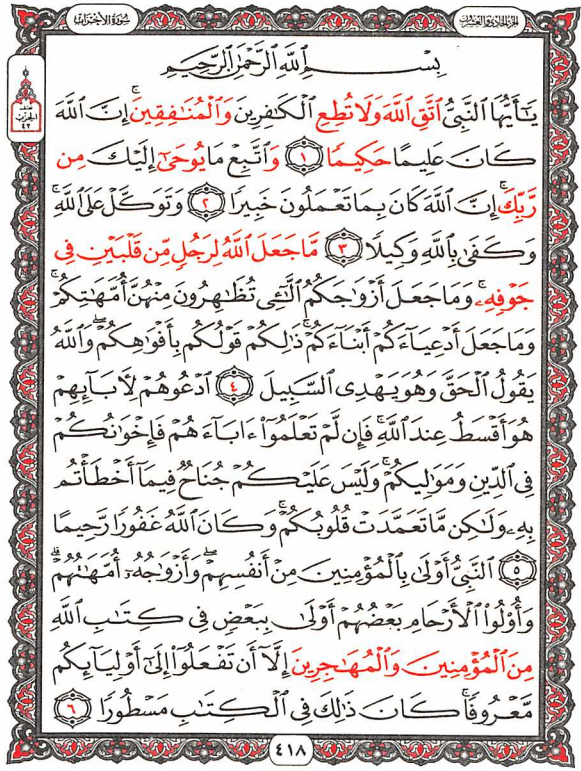 الجزء الحادي والعشرون
سورة الأحزاب
بِسْمِ اللَّهِ الرَّحْمَٰنِ الرَّحِيمِ
يَٰٓأَيُّهَا ٱلنَّبِىُّ ٱتَّقِ ٱللَّهَ وَلَا تُطِعِ ٱلْكَٰفِرِينَ وَٱلْمُنَٰفِقِينَۚ إِنَّ ٱللَّهَ
كَانَ عَلِيمًا حَكِيمًا ١ وَٱتَّبِعْ مَا يُوحَىٰٓ إِلَيْكَ مِن
رَّبِّكَۚ إِنَّ ٱللَّهَ كَانَ بِمَا تَعْمَلُونَ خَبِيرًا ٢ وَتَوَكَّلْ عَلَى ٱللَّهِۚ
وَكَفَىٰ بِٱللَّهِ وَكِيلًا ٣ مَّا جَعَلَ ٱللَّهُ لِرَجُلٍ مِّن قَلْبَيْنِ فِى
جَوْفِهِۦۚ وَمَا جَعَلَ أَزْوَٰجَكُمُ ٱلَّٰٓـِٔى تُظَٰهِرُونَ مِنْهُنَّ أُمَّهَٰتِكُمْۚ
وَمَا جَعَلَ أَدْعِيَآءَكُمْ أَبْنَآءَكُمْۚ ذَٰلِكُمْ قَوْلُكُم بِأَفْوَٰهِكُمْۖ وَٱللَّهُ
يَقُولُ ٱلْحَقَّ وَهُوَ يَهْدِى ٱلسَّبِيلَ ٤ ٱدْعُوهُمْ لِءَابَآئِهِمْ
هُوَ أَقْسَطُ عِندَ ٱللَّهِۚ فَإِن لَّمْ تَعْلَمُوٓا۟ ءَابَآءَهُمْ فَإِخْوَٰنُكُمْ
فِى ٱلدِّينِ وَمَوَٰلِيكُمْۚ وَلَيْسَ عَلَيْكُمْ جُنَاحٌ فِيمَآ أَخْطَأْتُم
بِهِۦ وَلَٰكِن مَّا تَعَمَّدَتْ قُلُوبُكُمْۚ وَكَانَ ٱللَّهُ غَفُورًا رَّحِيمًا
٥ ٱلنَّبِىُّ أَوْلَىٰ بِٱلْمُؤْمِنِينَ مِنْ أَنفُسِهِمْۖ وَأَزْوَٰجُهُۥٓ أُمَّهَٰتُهُمْۗ
وَأُو۟لُوا۟ ٱلْأَرْحَامِ بَعْضُهُمْ أَوْلَىٰ بِبَعْضٍ فِى كِتَٰبِ ٱللَّهِ
مِنَ ٱلْمُؤْمِنِينَ وَٱلْمُهَٰجِرِينَ إِلَّآ أَن تَفْعَلُوٓا۟ إِلَىٰٓ أَوْلِيَآئِكُم
مَّعْرُوفًاۚ كَانَ ذَٰلِكَ فِى ٱلْكِتَٰبِ مَسْطُورًا ٦
٤١٨
نصف
الحزب
٤٢